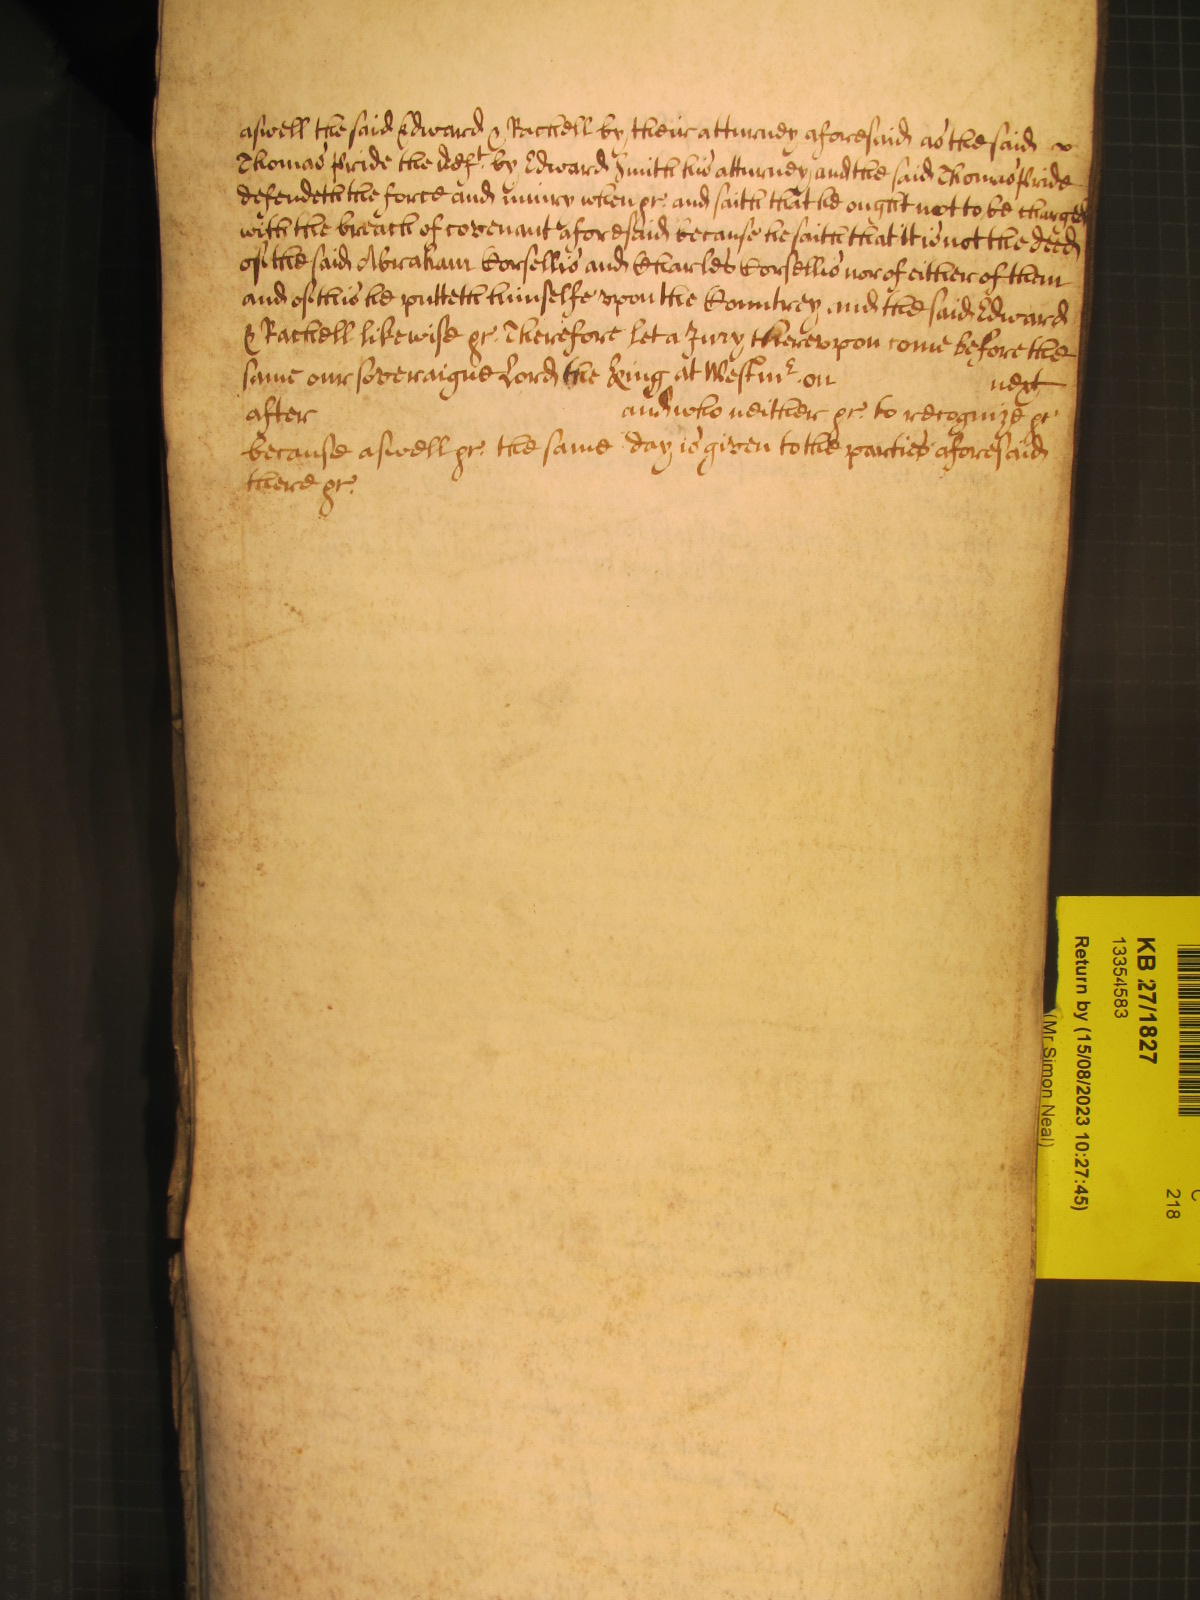 aswell the said Edward & Rachell by their atturney aforesaid as the said
Thomas Pride the Deft. by Edward Smith his atturney, and the said Thomas Pride
defendeth the force and iniury when &c. and saith that he ought not to be charged
with the breach of covenant aforesaid because he saith that it is not the deed
of the said Abraham Corsellis and Charles Corsellis nor of either of them
and of this he putteth himselfe vpon the Countrey and the said Edward
& Rachell likewise &c. Therefore let a Jury therevpon come before the
same our soveraigne Lord the King at Westmr. on next
after and who neither &c. to recognize &c.
because aswell &c. the same day is given to the parties aforesaid
there &c.
KB 27/1827
13354583
Return by (15/08/2023 10:27:45)
(Mr Simon Neal)
218